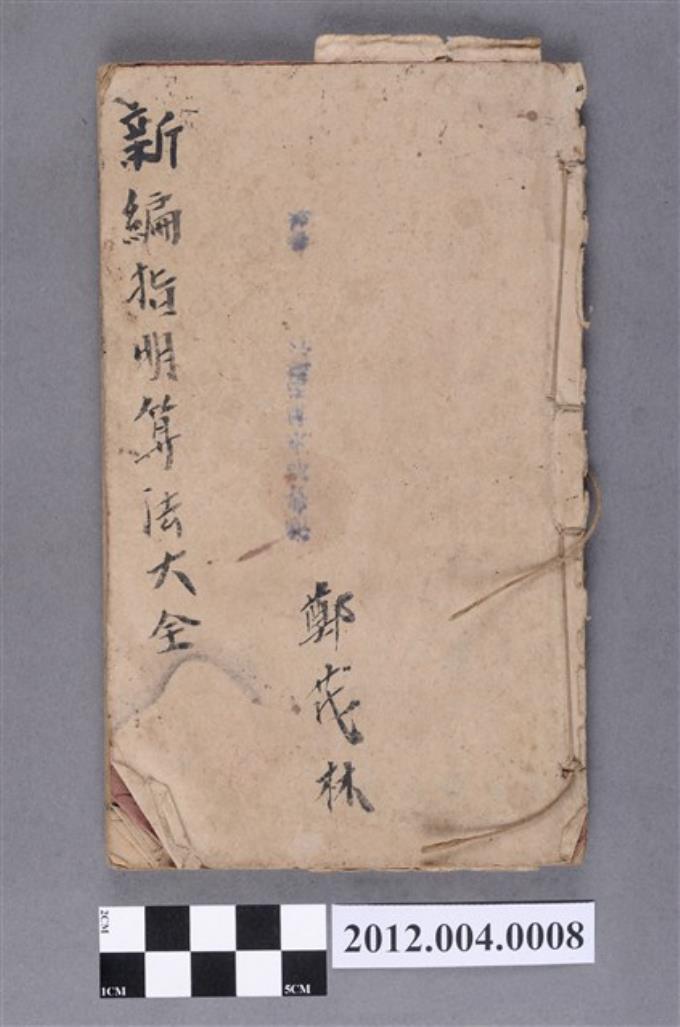 新編指明算法大全
鄭茂林
2CM
1CM
5CM
2012.004.0008